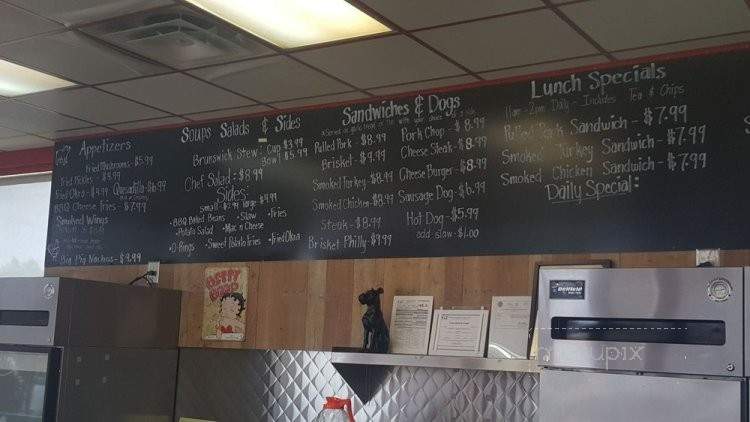 Appetizers
Fried Mushrooms - $5.99
Fried Pickles - $4.99
Fried Okra - $4.99 Quesadilla - $6.99
BBQ Cheese Fries - $7.99
Smoked Wings
Big Pig Nachos - $9.99
Soups Salads & Sides
Brunswick Stew: Cup $3.99
Bowl $5.99
Chef Salad - $8.99
Sides:
small $2.99 large $4.99
• BBQ Baked Beans • Slaw • Fries
• Potato Salad • Mac n Cheese
• O-Rings • Sweet Potato Fries • Fried Okra
Sandwiches & Dogs
with your choice of
Pulled Pork - $8.99
Brisket - $9.99
Smoked Turkey - $8.99
Smoked Chicken - $8.99
Steak - $8.99
Brisket Philly - $9.99
Pork Chop - $8.99
Cheese Steak - $8.99
Cheese Burger - $8.99
Sausage Dog - $6.99
Hot Dog - $5.99
add slaw - $1.00
Lunch Specials
11am - 2pm Daily - Includes Tea & Chips
Pulled Pork Sandwich - $7.99
Smoked Turkey Sandwich - $7.99
Smoked Chicken Sandwich - $7.99
Daily Special:
BETTY
BOOP
menupix